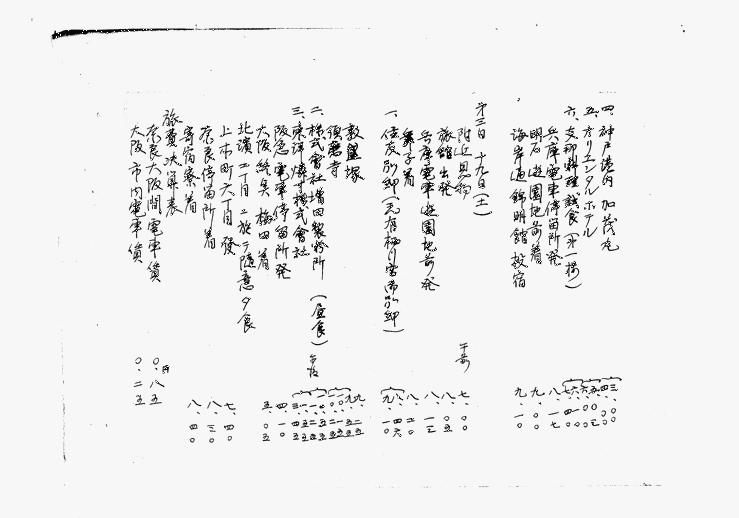 四、神戸港内 加茂丸
五、オリエンタルホテル
六、支那料理試食(第一楼)
兵庫電車停留所発
明石遊園地前着
海岸通 錦明館 投宿
第三日 十九日(土)
附近見物
旅館出発 午前 七、〇〇
兵庫電車遊園地前発
舞子着
一、住友別邸(元有栖川宮御別邸)
敦盛塚
須磨寺
二、株式會社増田製粉所(昼食)
三、東洋燐寸株式會社 午后
阪急電車停留所発
大阪終点 梅田着
北濱二丁目ニ放テ随意夕食
上本町六丁目発 七、四〇
奈良停留所着 八、三〇
寄宿寮着 八、四〇
旅費決算表
奈良大阪間電車賃 〇、八五
大阪市内電車賃 〇、二五